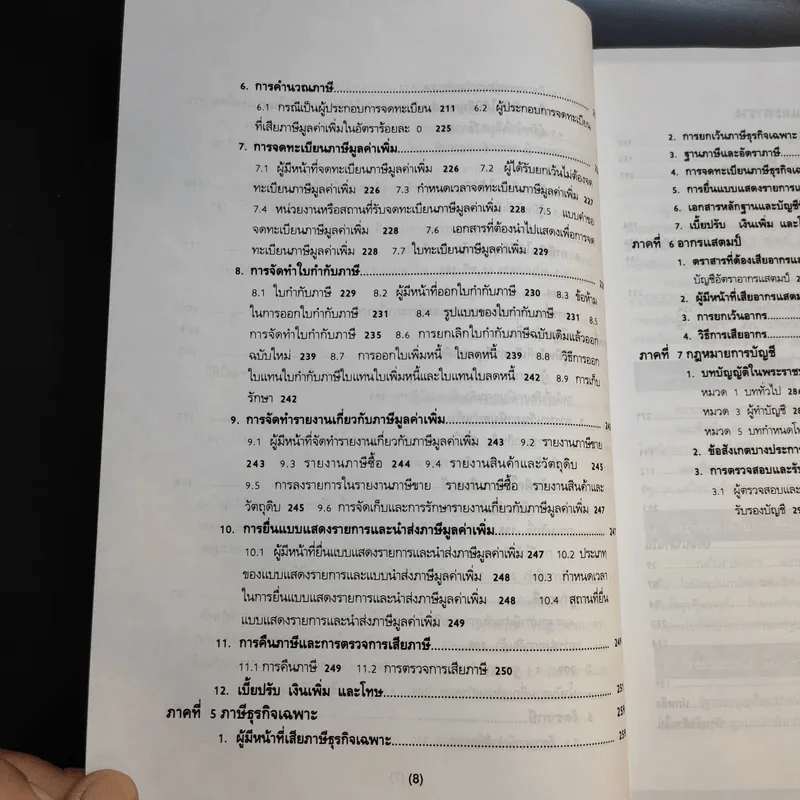 6. การคำนวณภาษี
6.1 กรณีเป็นผู้ประกอบการจดทะเบียน 211 6.2 ผู้ประกอบการจดทะเบียน
ที่เสียภาษีมูลค่าเพิ่มในอัตราร้อยละ 0 225
7. การจดทะเบียนภาษีมูลค่าเพิ่ม
7.1 ผู้มีหน้าที่จดทะเบียนภาษีมูลค่าเพิ่ม 226 7.2 ผู้ได้รับยกเว้นไม่ต้องจด
ทะเบียนภาษีมูลค่าเพิ่ม 226 7.3 กำหนดเวลาจดทะเบียนภาษีมูลค่าเพิ่ม 227
7.4 หน่วยงานหรือสถานที่รับจดทะเบียนภาษีมูลค่าเพิ่ม 228 7.5 แบบคำขอ
จดทะเบียนภาษีมูลค่าเพิ่ม 228 7.6 เอกสารที่ต้องนำไปแสดงเพื่อการจด
ทะเบียนภาษีมูลค่าเพิ่ม 228 7.7 ใบทะเบียนภาษีมูลค่าเพิ่ม 229
8. การจัดทำใบกำกับภาษี
8.1 ใบกำกับภาษี 229 8.2 ผู้มีหน้าที่ออกใบกำกับภาษี 230 8.3 ข้อห้าม
ในการออกใบกำกับภาษี 231 8.4 รูปแบบของใบกำกับภาษี 231 8.5
การจัดทำใบกำกับภาษี 235 8.6 การยกเลิกใบกำกับภาษีฉบับเดิมแล้วออก
ฉบับใหม่ 239 8.7 การออกใบเพิ่มหนี้ ใบลดหนี้ 239 8.8 วิธีการออก
ใบแทนใบกำกับภาษีใบแทนใบเพิ่มหนี้และใบแทนใบลดหนี้ 242 8.9 การเก็บ
รักษา 242
9. การจัดทำรายงานเกี่ยวกับภาษีมูลค่าเพิ่ม
9.1 ผู้มีหน้าที่จัดทำรายงานเกี่ยวกับภาษีมูลค่าเพิ่ม 243 9.2 รายงานภาษีขาย
243 9.3 รายงานภาษีซื้อ 244 9.4 รายงานสินค้าและวัตถุดิบ 245
9.5 การลงรายการในรายงานภาษีขาย รายงานภาษีซื้อ รายงานสินค้าและ
วัตถุดิบ 245 9.6 การจัดเก็บและการรักษารายงานเกี่ยวกับภาษีมูลค่าเพิ่ม 247
10. การยื่นแบบแสดงรายการและนำส่งภาษีมูลค่าเพิ่ม....247
10.1 ผู้มีหน้าที่ยื่นแบบแสดงรายการและนำส่งภาษีมูลค่าเพิ่ม 247 10.2 ประเภท
ของแบบแสดงรายการและแบบนำส่งภาษีมูลค่าเพิ่ม 248 10.3 กำหนดเวลา
ในการยื่นแบบแสดงรายการและนำส่งภาษีมูลค่าเพิ่ม 248 10.4 สถานที่ยื่น
แบบแสดงรายการและนำส่งภาษีมูลค่าเพิ่ม 249
11. การคืนภาษีและการตรวจการเสียภาษี....249
11.1 การคืนภาษี 249 11.2 การตรวจการเสียภาษี 250
12. เบี้ยปรับ เงินเพิ่ม และโทษ....251
ภาคที่ 5 ภาษีธุรกิจเฉพาะ 259
1. ผู้มีหน้าที่เสียภาษีธุรกิจเฉพาะ....259
(8)
2. การยกเว้นภาษีธุรกิจเฉพาะ
3. ฐานภาษีและอัตราภาษี
4. การจดทะเบียนภาษีธุรกิจเฉ
5. การยื่นแบบแสดงรายการแ
6. เอกสารหลักฐานและบัญชี
7. เบี้ยปรับ เงินเพิ่ม และโ
ภาคที่ 6 อากรแสตมป์
1. ตราสารที่ต้องเสียอากรแส
บัญชีอัตราอากรแสตมป์ 2
2. ผู้มีหน้าที่เสียอากรแสตม
3. การยกเว้นอากร
4. วิธีการเสียอากร
ภาคที่ 7 กฎหมายการบัญชี
1. บทบัญญัติในพระราช
หมวด 1 บททั่วไป 286
หมวด 3 ผู้ทำบัญชี
หมวด 5 บทกำหนดโท
2. ข้อสังเกตบางประการ
3. การตรวจสอบและรับ
3.1 ผู้ตรวจสอบและ
รับรองบัญชี 29